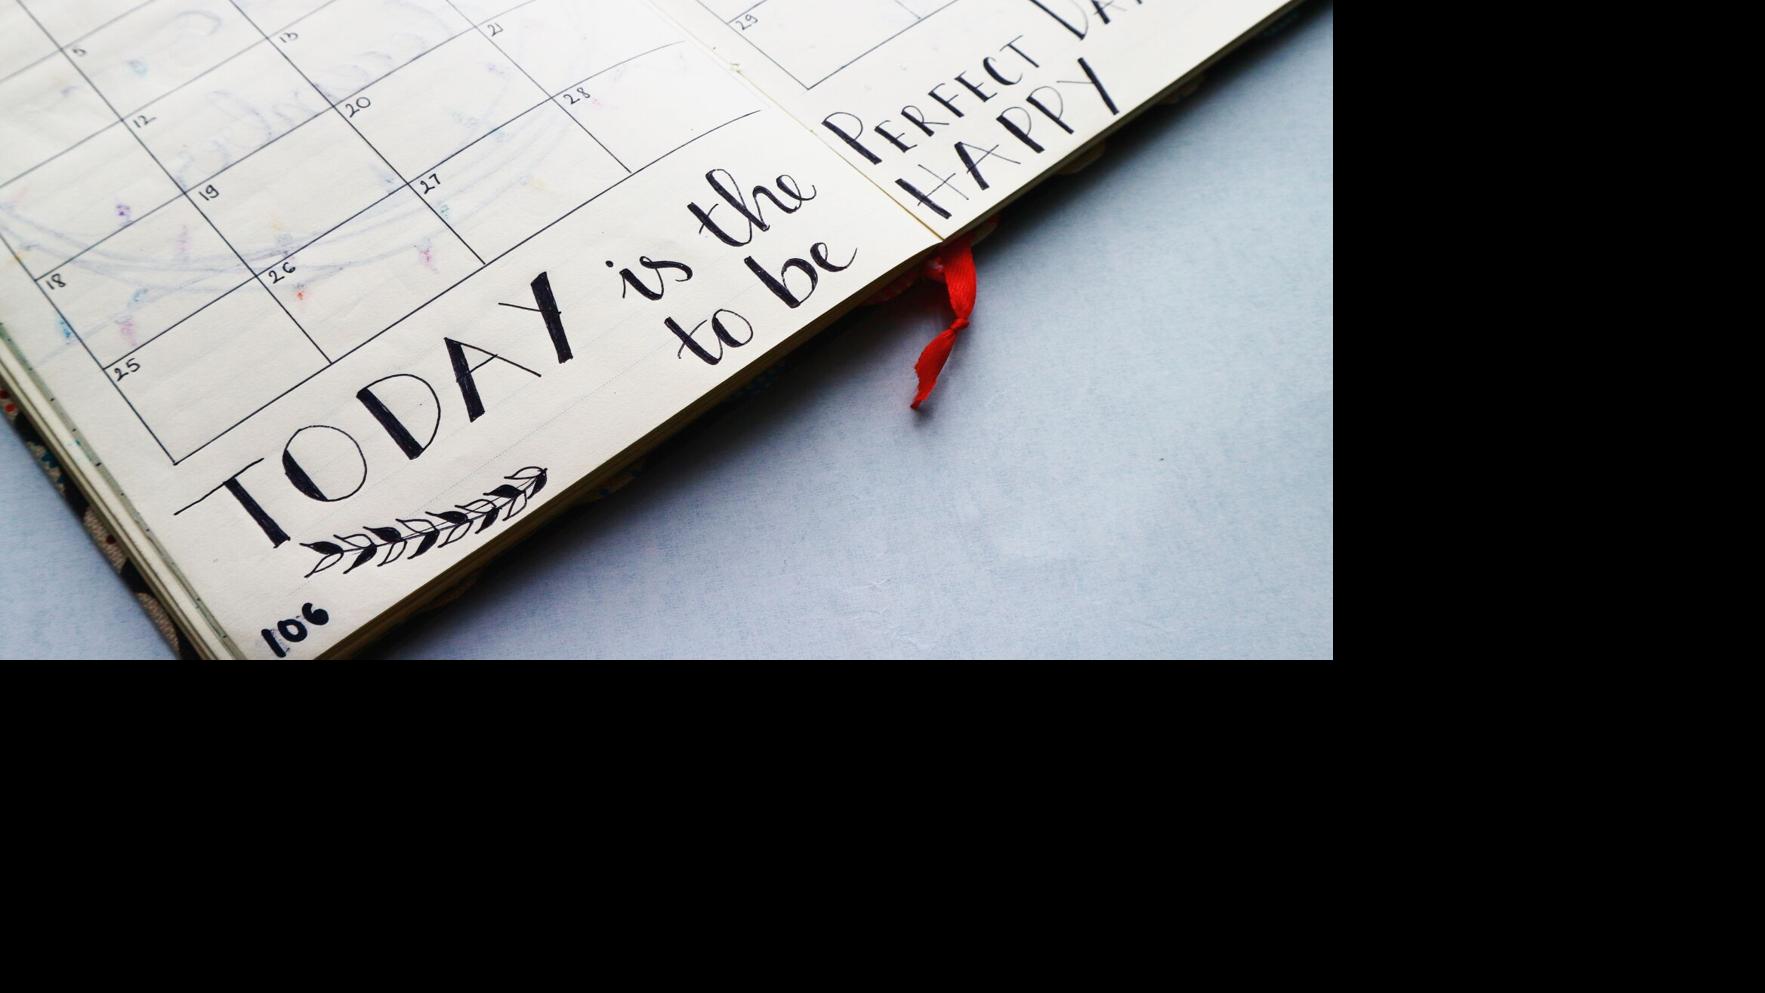 5 13 21 29
12 20 28
19 27
18 26
25
TODAY is the PERFECT
to be HAPPY
106